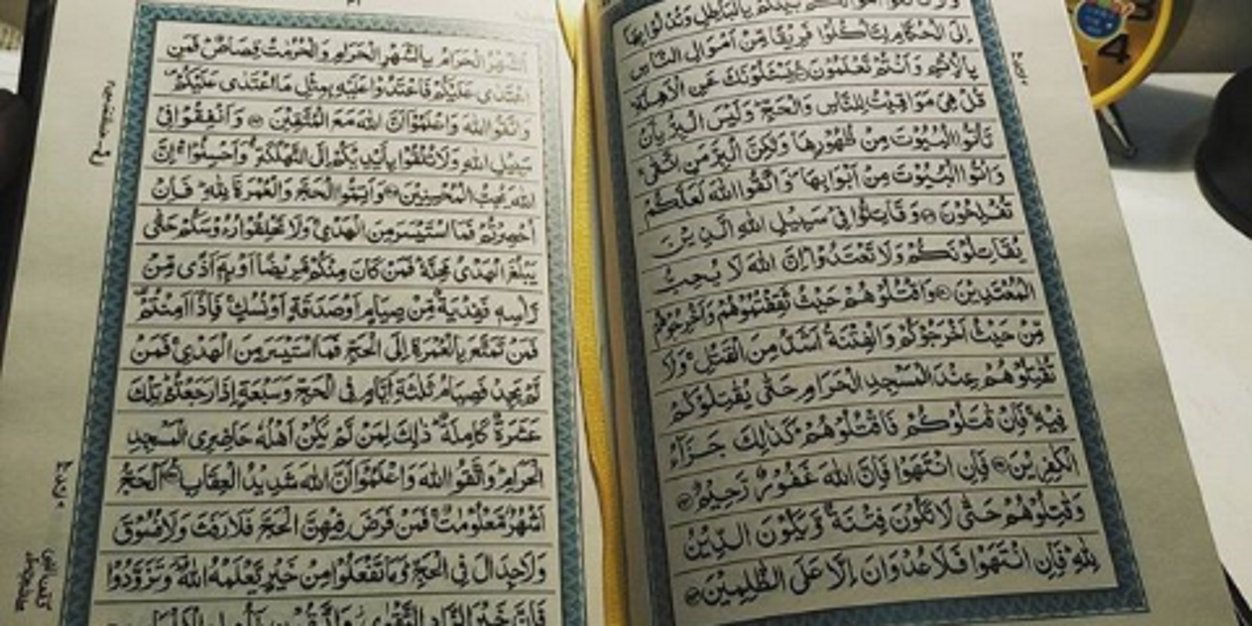 اَمْوَالَكُمْ بَيْنَكُمْ بِالْبَاطِلِ وَتُدْلُوْا بِهَا
اِلَى الْحُكَّامِ لِتَاْكُلُوْا فَرِيْقًا مِّنْ اَمْوَالِ النَّاسِ
بِالْاِثْمِ وَاَنْتُمْ تَعْلَمُوْنَ يَسْـَٔلُوْنَكَ عَنِ الْاَهِلَّةِ
قُلْ هِيَ مَوَاقِيْتُ لِلنَّاسِ وَالْحَجِّ وَلَيْسَ الْبِرُّ بِاَنْ
تَاْتُوا الْبُيُوْتَ مِنْ ظُهُوْرِهَا وَلٰكِنَّ الْبِرَّ مَنِ اتَّقٰى
وَاْتُوا الْبُيُوْتَ مِنْ اَبْوَابِهَا وَاتَّقُوا اللّٰهَ لَعَلَّكُمْ
تُفْلِحُوْنَ وَقَاتِلُوْا فِيْ سَبِيْلِ اللّٰهِ الَّذِيْنَ
يُقَاتِلُوْنَكُمْ وَلَا تَعْتَدُوْا اِنَّ اللّٰهَ لَا يُحِبُّ
الْمُعْتَدِيْنَ وَاقْتُلُوْهُمْ حَيْثُ ثَقِفْتُمُوْهُمْ وَاَخْرِجُوْهُمْ
مِّنْ حَيْثُ اَخْرَجُوْكُمْ وَالْفِتْنَةُ اَشَدُّ مِنَ الْقَتْلِ وَلَا
تُقٰتِلُوْهُمْ عِنْدَ الْمَسْجِدِ الْحَرَامِ حَتّٰى يُقٰتِلُوْكُمْ
فِيْهِ فَاِنْ قٰتَلُوْكُمْ فَاقْتُلُوْهُمْ كَذٰلِكَ جَزَآءُ
الْكٰفِرِيْنَ فَاِنِ انْتَهَوْا فَاِنَّ اللّٰهَ غَفُوْرٌ رَّحِيْمٌ
وَقٰتِلُوْهُمْ حَتّٰى لَا تَكُوْنَ فِتْنَةٌ وَّيَكُوْنَ الدِّيْنُ
لِلّٰهِ فَاِنِ انْتَهَوْا فَلَا عُدْوَانَ اِلَّا عَلَى الظّٰلِمِيْنَ
اَلشَّهْرُ الْحَرَامُ بِالشَّهْرِ الْحَرَامِ وَالْحُرُمٰتُ قِصَاصٌ فَمَنِ
اعْتَدٰى عَلَيْكُمْ فَاعْتَدُوْا عَلَيْهِ بِمِثْلِ مَا اعْتَدٰى عَلَيْكُمْ
وَاتَّقُوا اللّٰهَ وَاعْلَمُوْٓا اَنَّ اللّٰهَ مَعَ الْمُتَّقِيْنَ وَاَنْفِقُوْا فِيْ
سَبِيْلِ اللّٰهِ وَلَا تُلْقُوْا بِاَيْدِيْكُمْ اِلَى التَّهْلُكَةِ وَاَحْسِنُوْا اِنَّ
اللّٰهَ يُحِبُّ الْمُحْسِنِيْنَ وَاَتِمُّوا الْحَجَّ وَالْعُمْرَةَ لِلّٰهِ فَاِنْ
اُحْصِرْتُمْ فَمَا اسْتَيْسَرَ مِنَ الْهَدْيِ وَلَا تَحْلِقُوْا رُءُوْسَكُمْ حَتّٰى
يَبْلُغَ الْهَدْيُ مَحِلَّهٗ فَمَنْ كَانَ مِنْكُمْ مَّرِيْضًا اَوْ بِهٖٓ اَذًى مِّنْ
رَّاْسِهٖ فَفِدْيَةٌ مِّنْ صِيَامٍ اَوْ صَدَقَةٍ اَوْ نُسُكٍ فَاِذَآ اَمِنْتُمْ
فَمَنْ تَمَتَّعَ بِالْعُمْرَةِ اِلَى الْحَجِّ فَمَا اسْتَيْسَرَ مِنَ الْهَدْيِ فَمَنْ
لَّمْ يَجِدْ فَصِيَامُ ثَلٰثَةِ اَيَّامٍ فِى الْحَجِّ وَسَبْعَةٍ اِذَا رَجَعْتُمْ تِلْكَ
عَشَرَةٌ كَامِلَةٌ ذٰلِكَ لِمَنْ لَّمْ يَكُنْ اَهْلُهٗ حَاضِرِى الْمَسْجِدِ
الْحَرَامِ وَاتَّقُوا اللّٰهَ وَاعْلَمُوْٓا اَنَّ اللّٰهَ شَدِيْدُ الْعِقَابِ اَلْحَجُّ
اَشْهُرٌ مَّعْلُوْمٰتٌ فَمَنْ فَرَضَ فِيْهِنَّ الْحَجَّ فَلَا رَفَثَ وَلَا فُسُوْقَ
وَلَا جِدَالَ فِى الْحَجِّ وَمَا تَفْعَلُوْا مِنْ خَيْرٍ يَّعْلَمْهُ اللّٰهُ وَتَزَوَّدُوْا
فَاِنَّ خَيْرَ الزَّادِ التَّقْوٰى
4